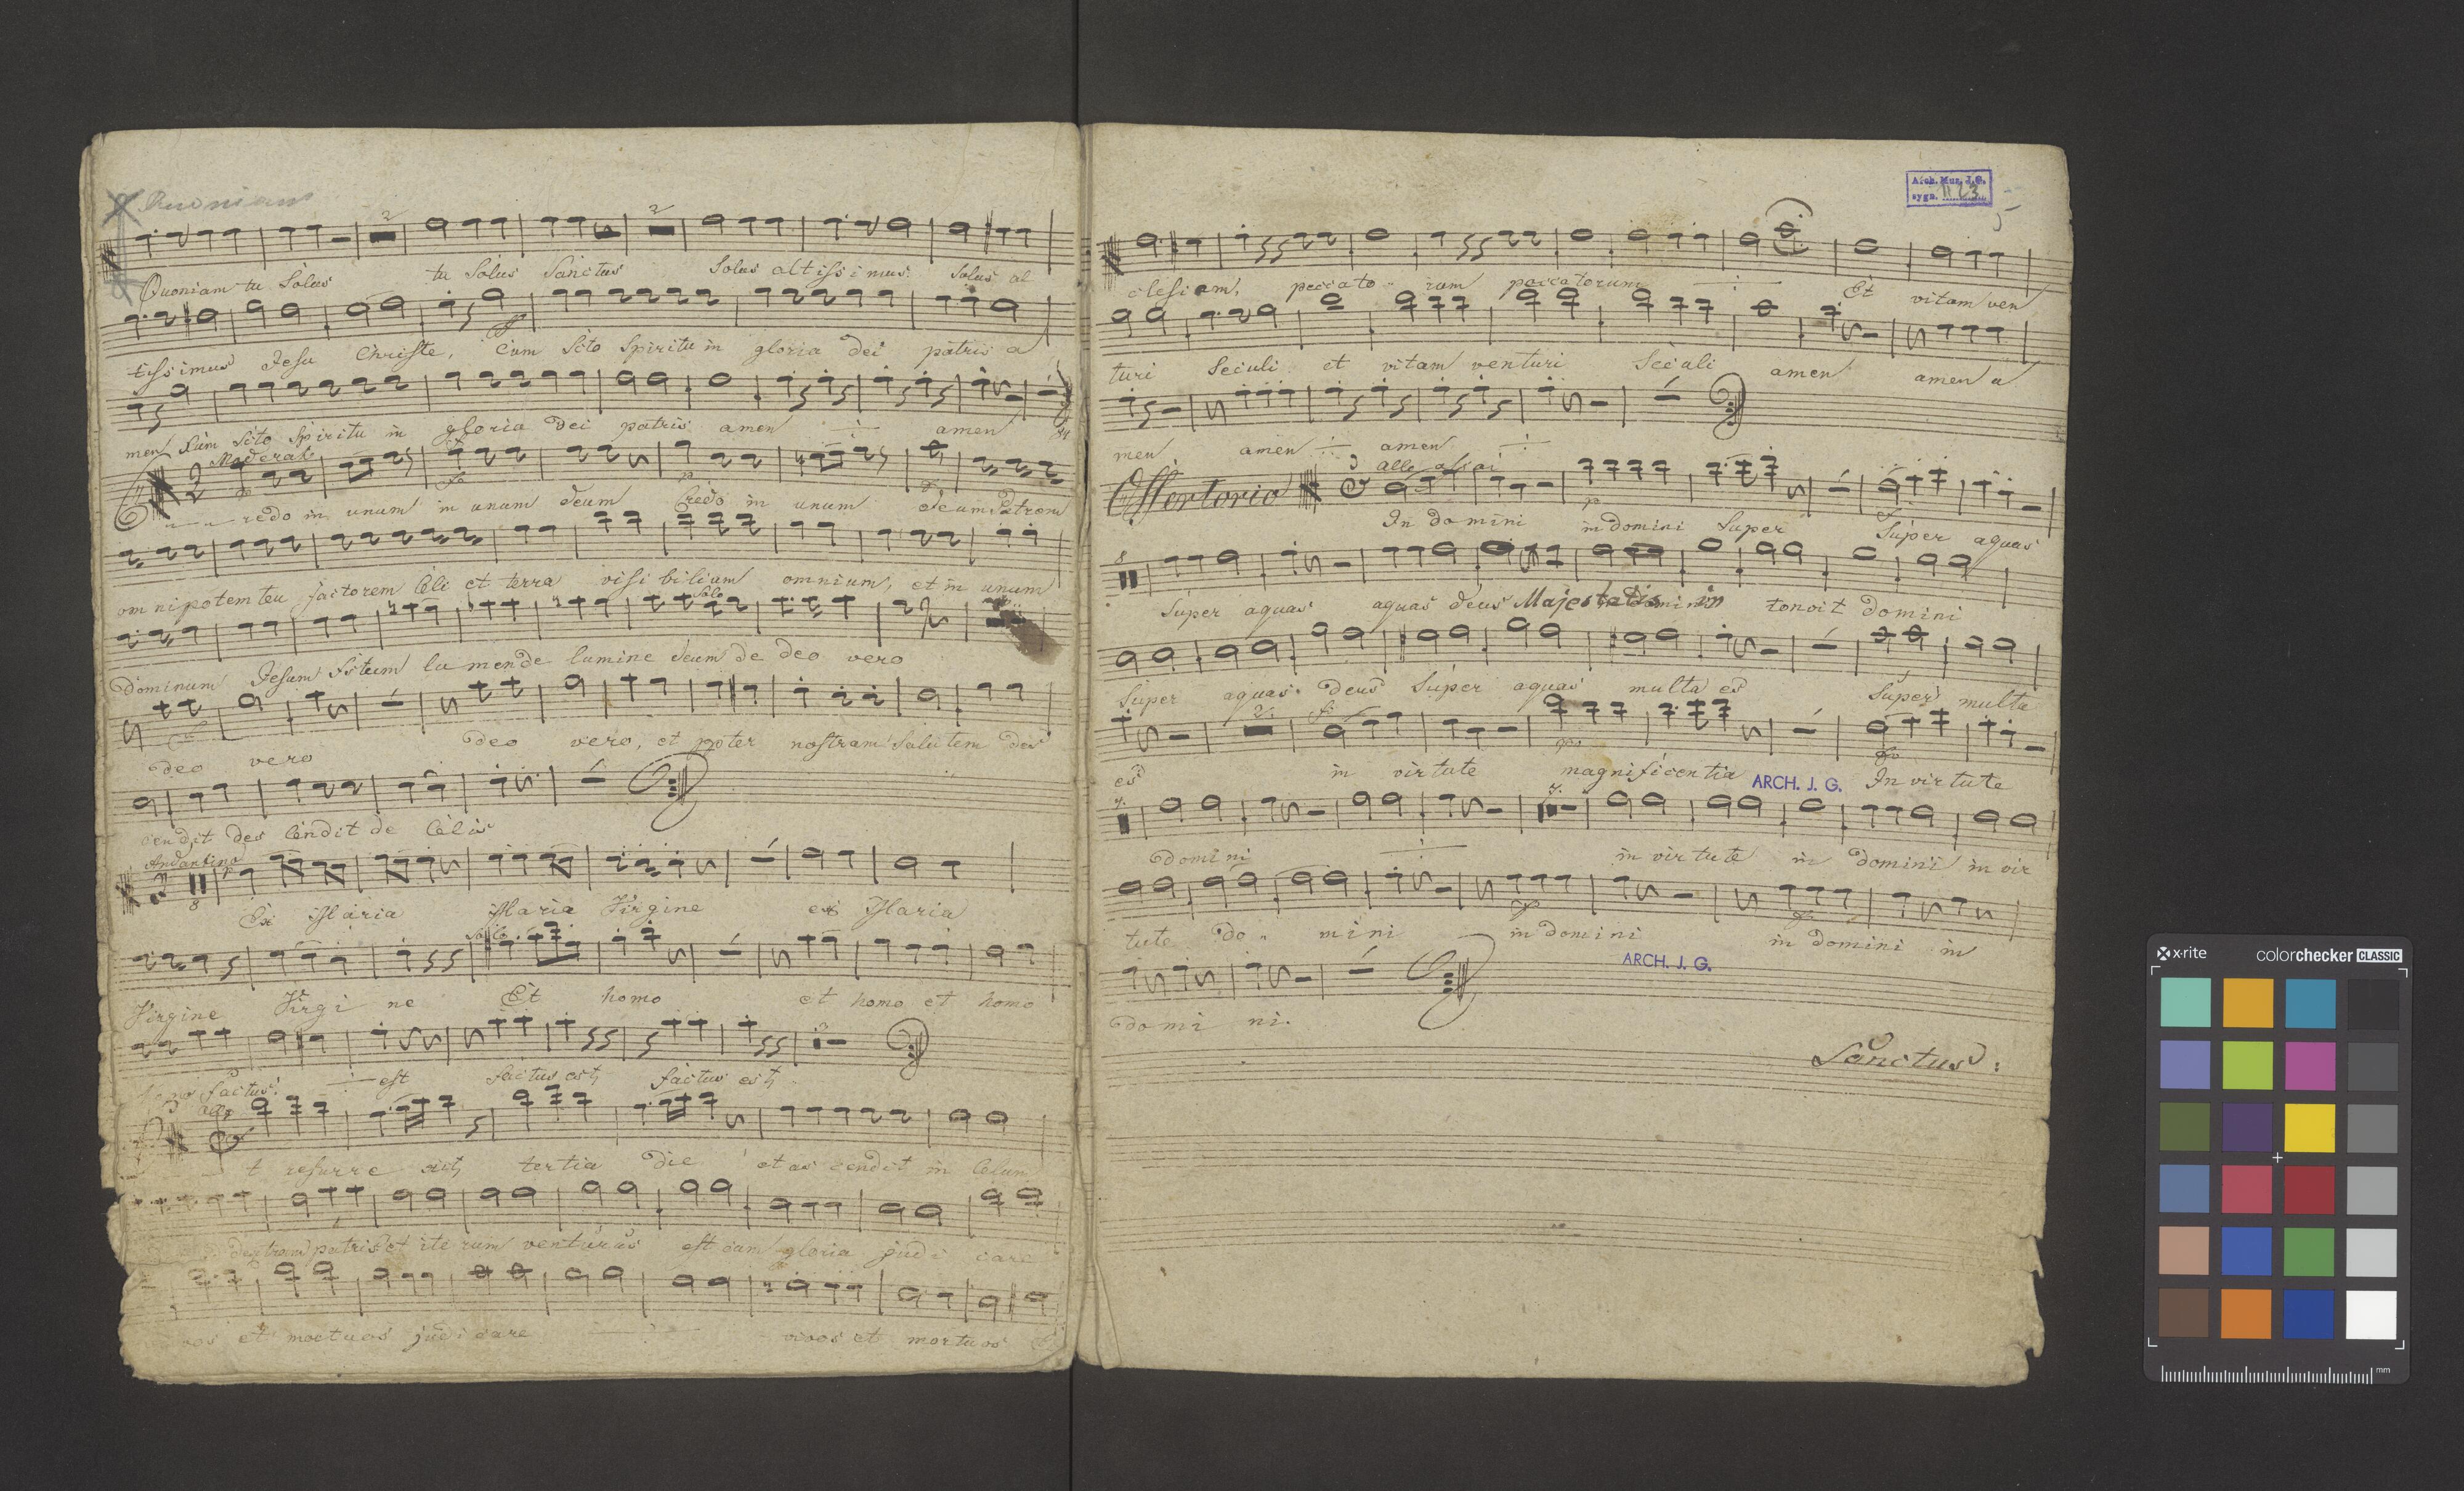 Quoniam
2 2
Quoniam tu Solus tu Solus Sanctus Solus altissimus Solus al
tissimus Jesu Christe, Cum Scto Spiritu in gloria dei patris a
men Cum Scto Spiritu in gloria dei patris amen amen
Moderato
redo in unum in unum deum Credo in unum deum Patrem
omnipotentem factorem Celi et terra visibilium omnium, et in unum
Solo
dominum Jesum Lumen de lumine deum de deo vero
deo vero deo vero, et propter nostram Salutem des
cendit des Cendit de Celis
Andantino
8
Ex Maria Maria Virgine ex Maria
Solo
Virgine Virgi ne Et homo et homo et homo
homo factus est factus est, factus est,
3
Allo
t resurre xit, tertia die et as cendit in Celum
dextram patris et iterum venturus est cum gloria judi care
vos et mortuos judicare vivos et mortuos
Arch. Muz. J. G.
sygn.
5
clesiam, peccato rum peccatorum Et vitam ven
turi Seculi et vitam venturi Seculi amen amen a
men amen amen
Offertorio
allo assai
In domini in domini Super Super aquas
8
Super aquas aquas deus Majestatis in tonuit domini
Super aquas deus Super aquas multa es Super multa
2
es in virtute magnificentia ARCH. J. G. In virtute
7. 7.
domini in virtute in domini in vir
tute do mini in domini in domini in
ARCH. J. G.
domi ni.
Sanctus:
x-rite colorchecker CLASSIC
mm